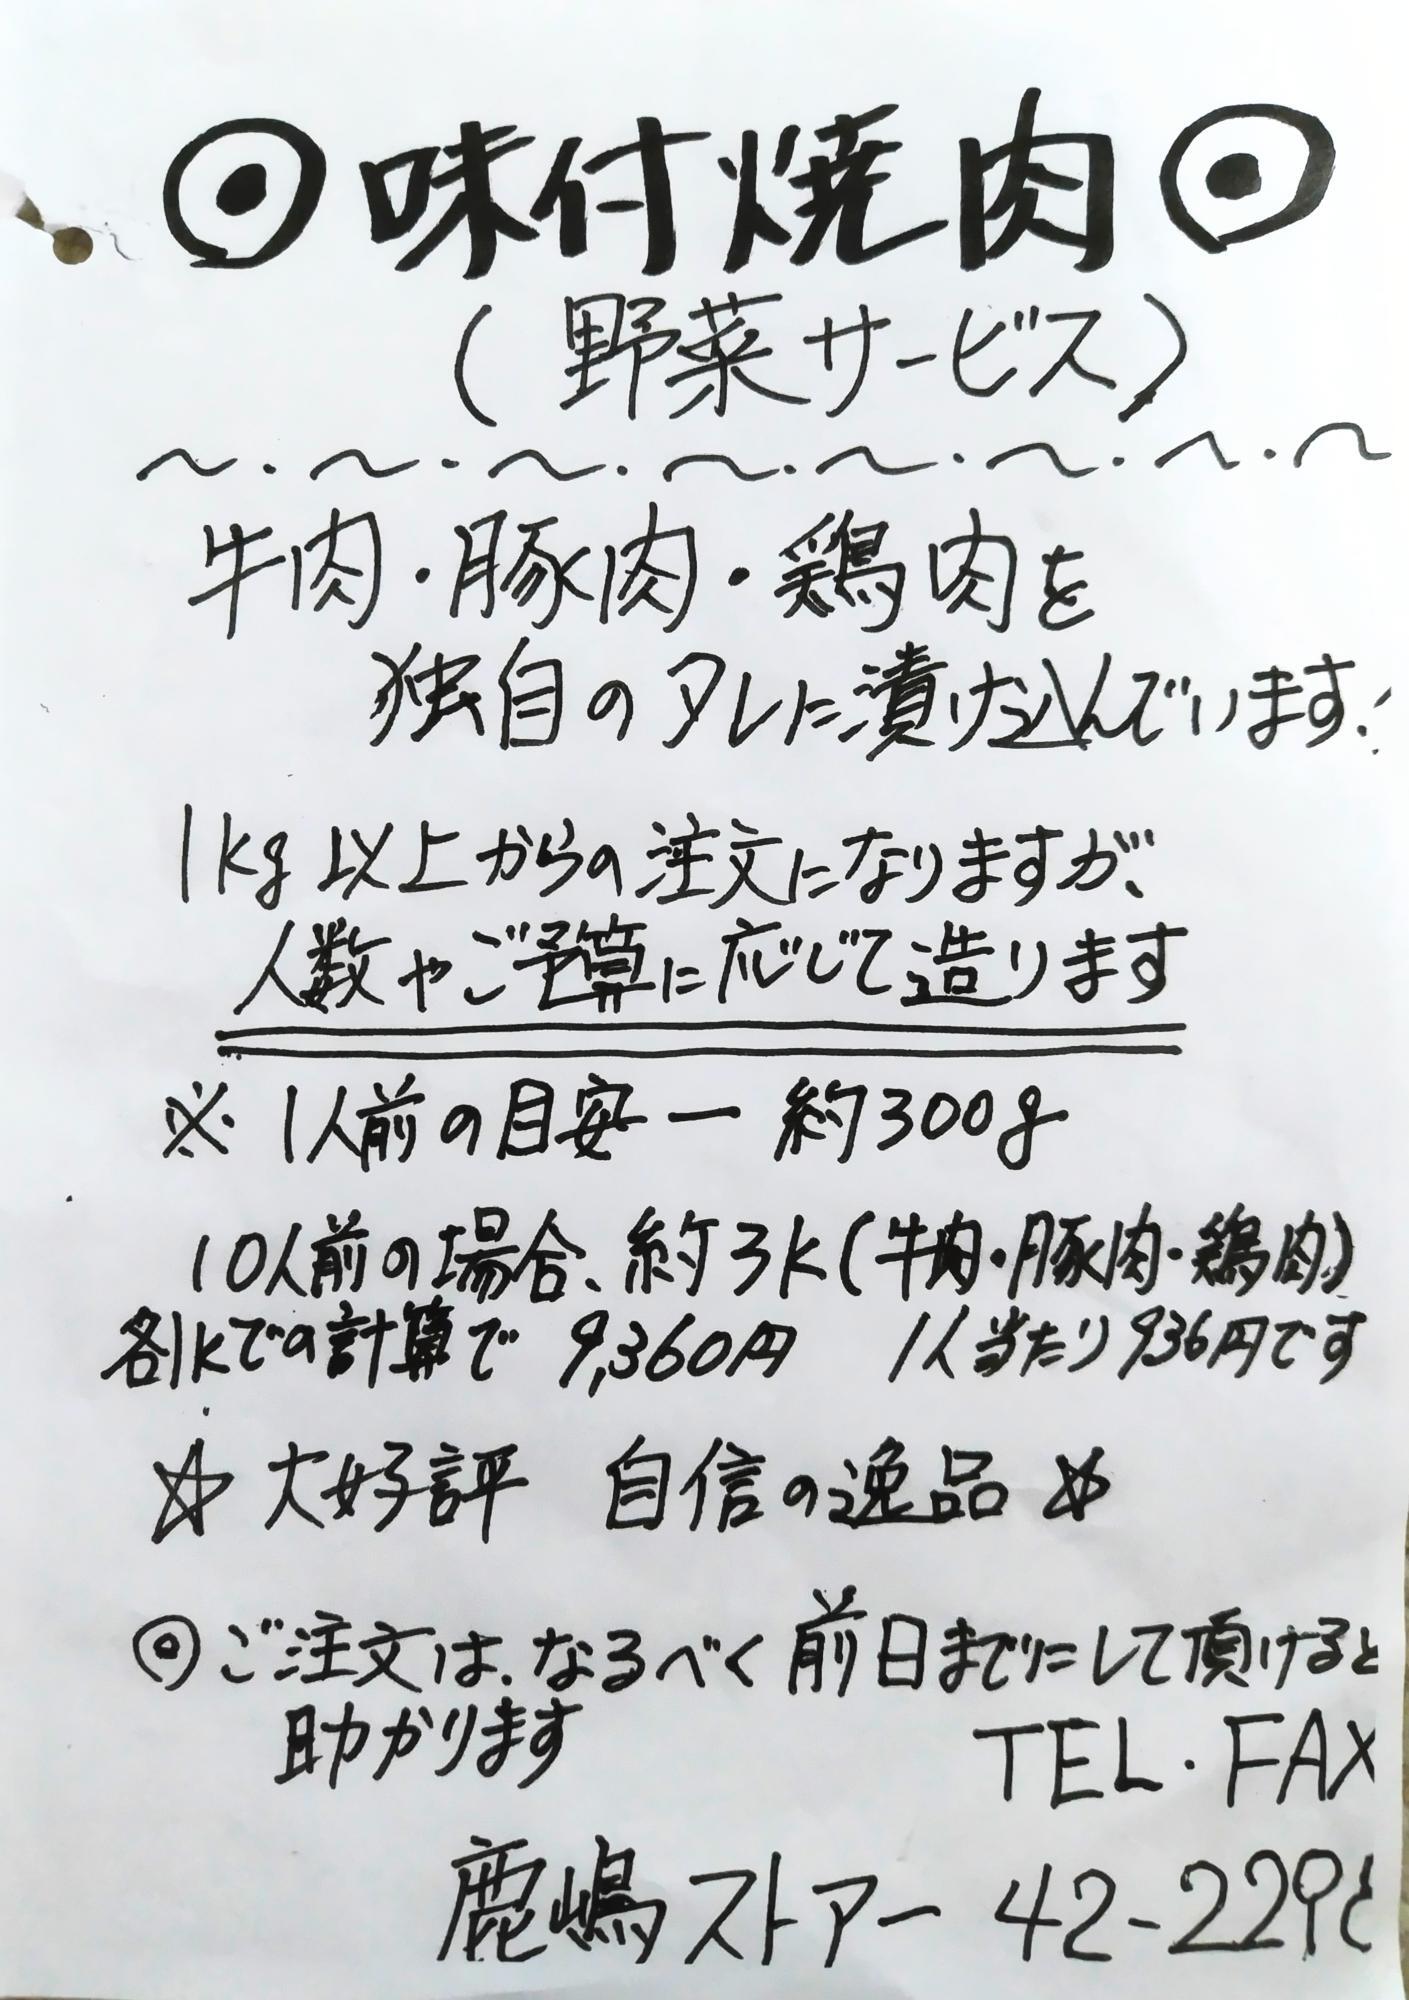 ◎味付焼肉◎
(野菜サービス)
〜・〜・〜・〜・〜・〜・〜・〜
牛肉・豚肉・鶏肉を
独自のタレに漬け込んでいます!
1kg以上からの注文になりますが、
人数やご予算に応じて造ります
※ 1人前の目安ー 約300g
10人前の場合、約3k(牛肉・豚肉・鶏肉)
各1kでの計算で 9,360円 1人当たり936円です
☆ 大好評 自信の逸品 ☆
◎ご注文は、なるべく前日までにして頂けると
助かります
TEL・FAX
鹿嶋ストアー 42-229